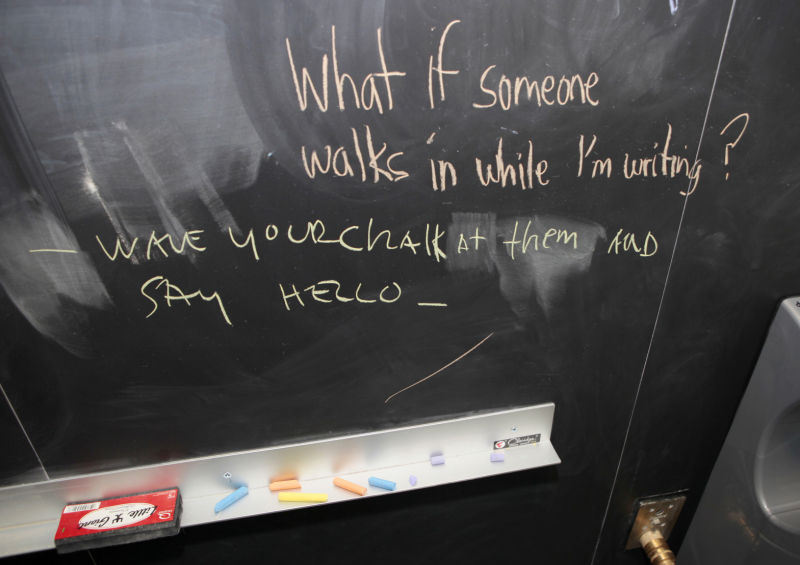 What if someone
walks in while I'm writing?
– WAVE YOUR ChALK At them AND
SAY HELLO –
Little Giant